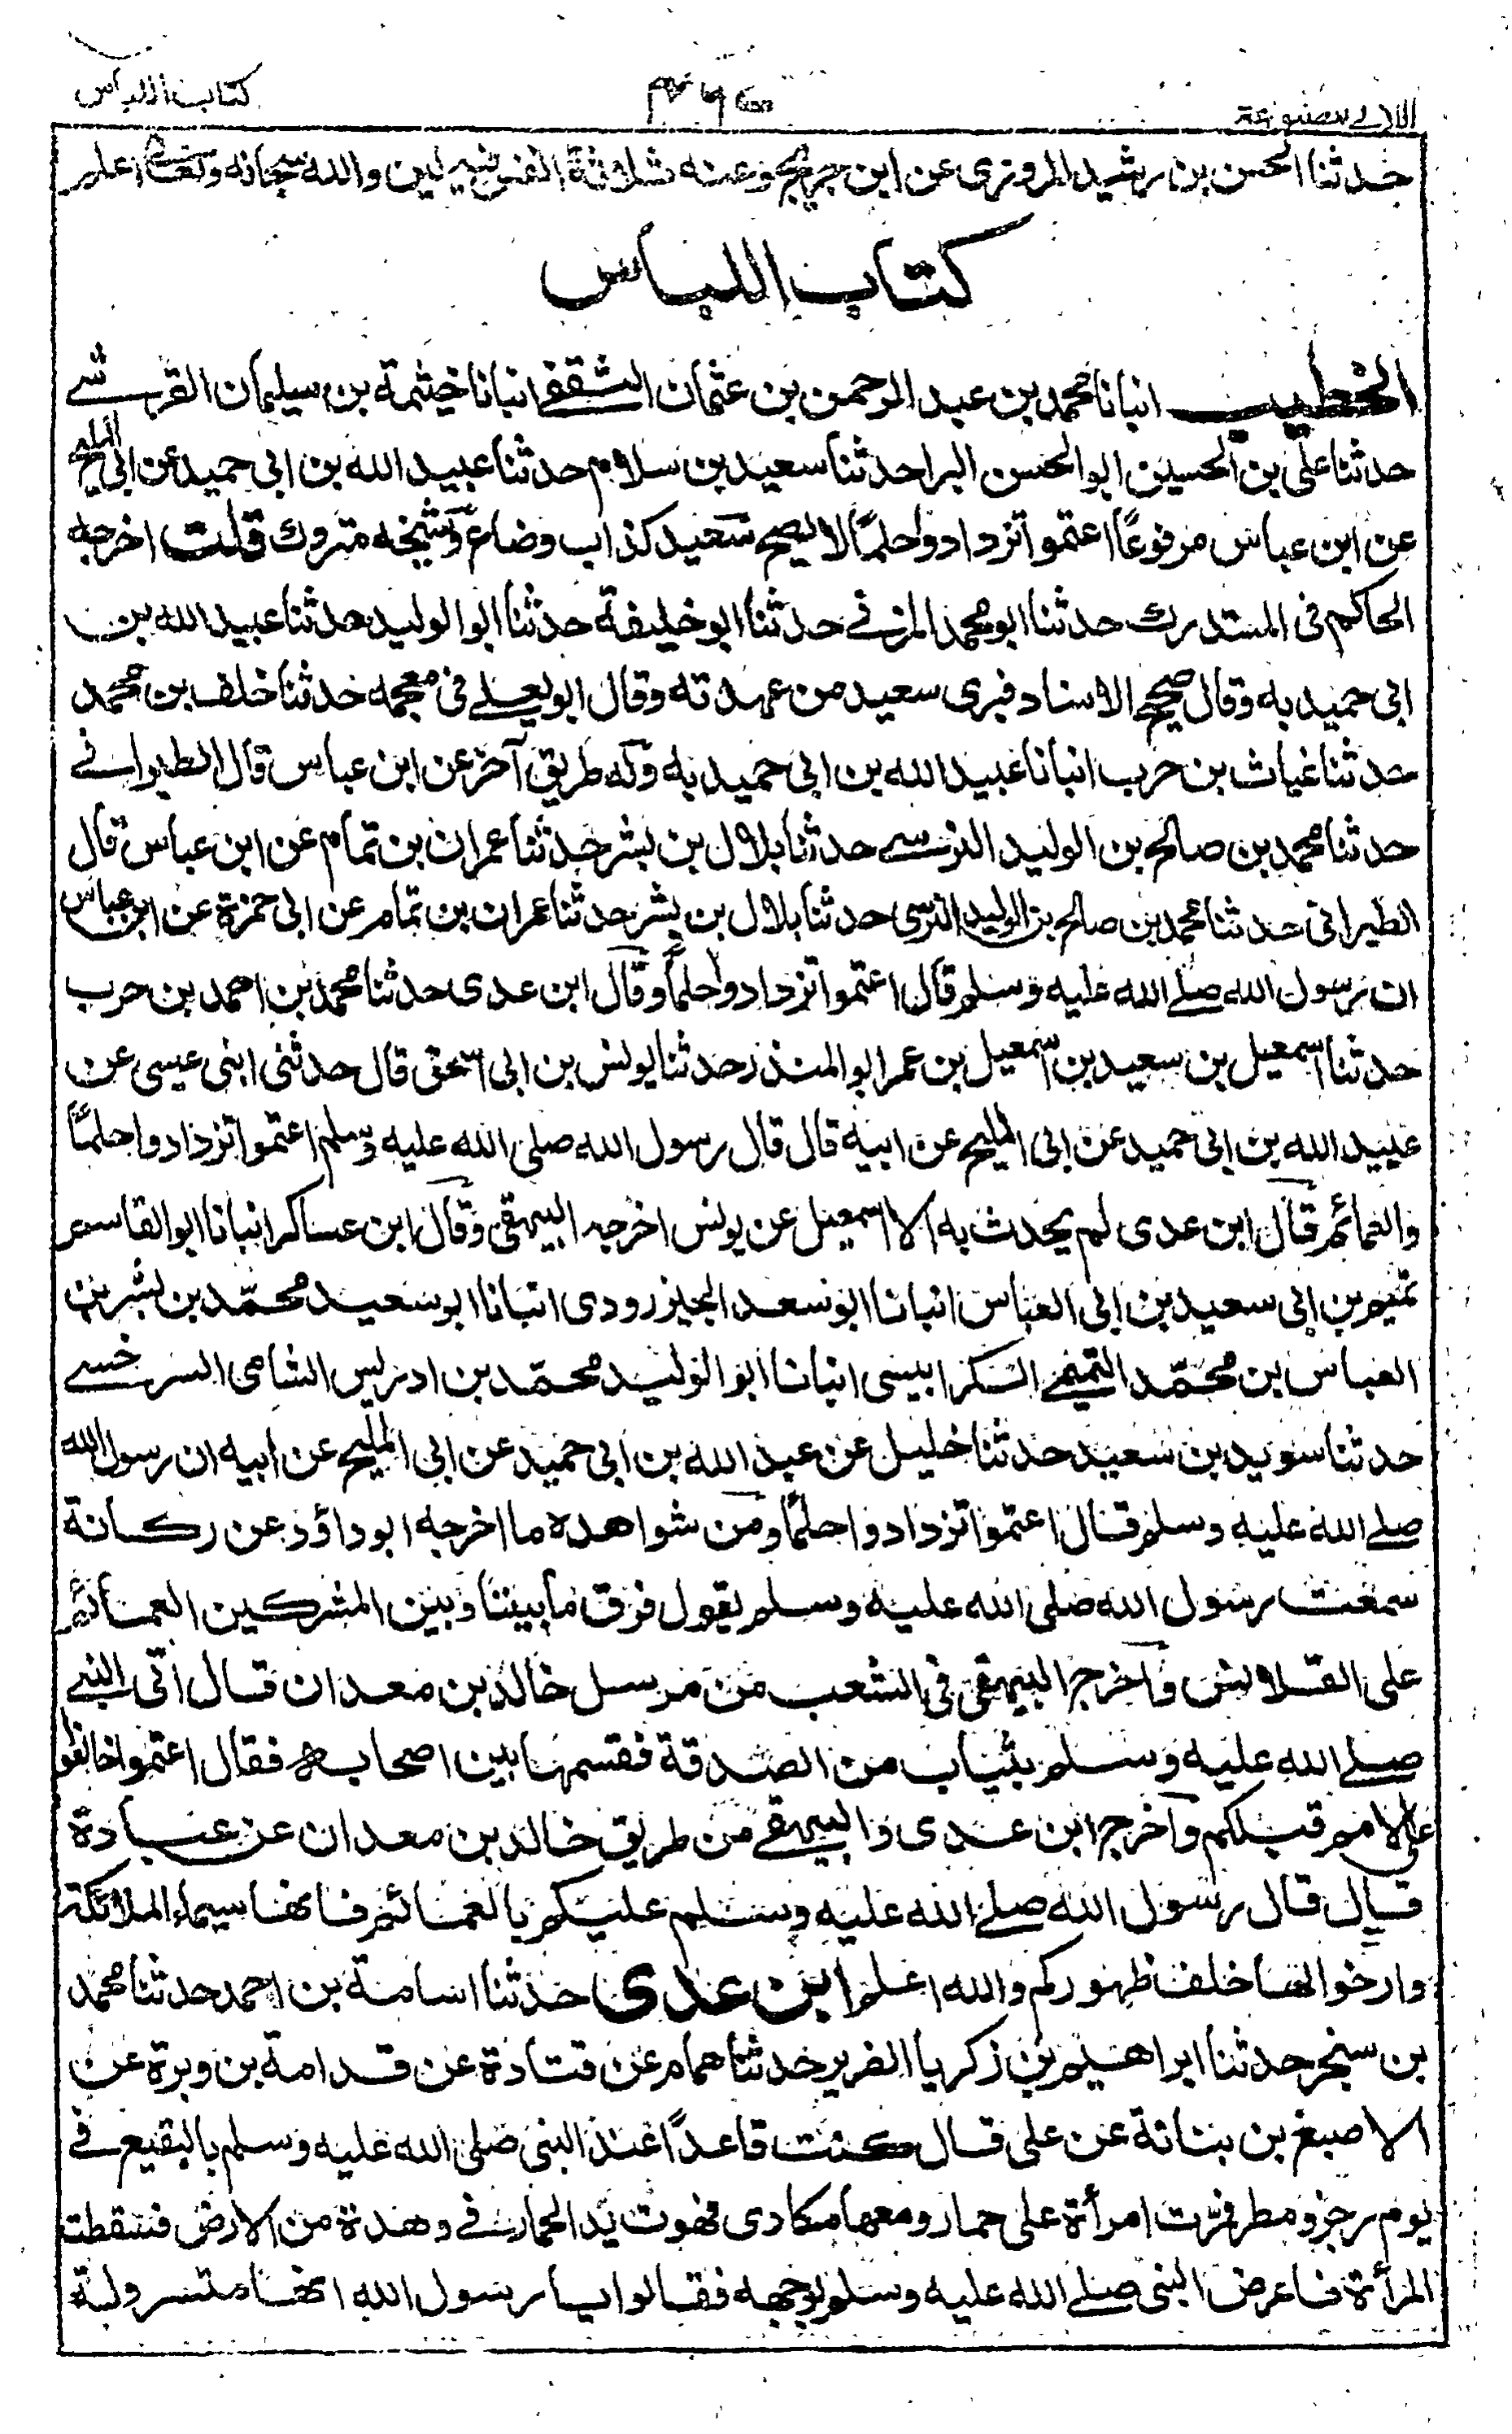 كتاب اللباس
اللآلى المصنوعة
حدثنا الحسن بن رشيد المروزى عن ابن جريج وعنه ثلاثة انفس فيهم لين والله سبحانه وتعالى اعلم
كتاب اللباس
الخطيب انبانا محمد بن عبد الرحمن بن عثمان الثقفے انبانا خيثمة بن سليمان القرشے
حدثنا علي بن الحسين ابو الحسن البرا حدثنا سعيد بن سلام حدثنا عبيد الله بن ابى حميد عن ابى المليح
عن ابن عباس مرفوعًا اعتموا تزدادوا حلمًا لا يصح سعيد كذاب وضاع وشيخه متروك قلت اخرجه
الحاكم فى المستدرك حدثنا ابو محمد المزنے حدثنا ابو خليفة حدثنا ابو الوليد حدثنا عبيد الله بن
ابى حميد به وقال صحيح الاسناد فبرى سعيد من عهدته وقال ابو يعلے فى معجمه حدثنا خلف بن محمد
حدثنا غياث بن حرب انبانا عبيد الله بن ابى حميد به وله طريق آخر عن ابن عباس قال الطبرانے
حدثنا محمد بن صالح بن الوليد النرسے حدثنا بلال بن بشر حدثنا عمران بن تمام عن ابن عباس قال
الطبرانى حدثنا محمد بن صالح بن الوليد النرسى حدثنا بلال بن بشر حدثنا عمران بن تمام عن ابى حمزة عن ابن عباس
ان رسول الله صلے الله عليه وسلم قال اعتموا تزدادوا حلماً وقال ابن عدى حدثنا محمد بن احمد بن حرب
حدثنا اسمعيل بن سعيد بن اسمعيل بن عمر ابو المنذر حدثنا يونس بن ابى اسحق قال حدثنى ابنى عيسى عن
عبيد الله بن ابى حميد عن ابى المليح عن ابيه قال قال رسول الله صلى الله عليه وسلم اعتموا تزدادوا حلمًا
والعمائم قال ابن عدى لم يحدث به الا اسمعيل عن يونس اخرجه البيهقى وقال ابن عساكر انبانا ابو القاسم
تميم بن ابى سعيد بن ابى العباس انبانا ابو سعد الجنزرودى انبانا ابو سعيد محمّد بن بشر بن
العباس بن محمّد التميمے الكرابيسى انبانا ابو الوليد محمّد بن ادريس الشامى السرخسے
حدثنا سويد بن سعيد حدثنا خليل عن عبد الله بن ابى حميد عن ابى المليح عن ابيه ان رسول الله
صلے الله عليه وسلم قال اعتموا تزدادوا حلمًا ومن شواهده ما اخرجه ابو داؤد عن ركانة
سمعت رسول الله صلى الله عليه وسلم يقول فرق ما بيننا وبين المشركين العمائم
على القلانس وآخرج البيهقى فى الشعب من مرسل خالد بن معدان قال اتى النبے
صلے الله عليه وسلم بثياب من الصدقة فقسمها بين اصحابه فقال اعتموا خالفوا
على الامم قبلكم وآخرج ابن عدى والبيهقے من طريق خالد بن معدان عن عبادة
قال قال رسول الله صلے الله عليه وسلم عليكم بالعمائم فانها سيماء الملائكة
وارخوا لها خلف ظهوركم والله اعلم ابن عدى حدثنا اسامة بن احمد حدثنا محمد
بن سنجر حدثنا ابراهيم بن زكريا الضرير حدثنا همام عن قتادة عن قدامة بن وبرة عن
الاصبغ بن بناتة عن على قال كنت قاعدًا عند النبى صلى الله عليه وسلم بالبقيع فے
يوم رجز ومطر فمرّت امرأة على حمار ومعها مكارى فهوت يد الحمار فے وهدة من الارض فسقطت
المرأة فاعرض النبى صلے الله عليه وسلم بوجهه فقالوا يا رسول الله انها متسرولة